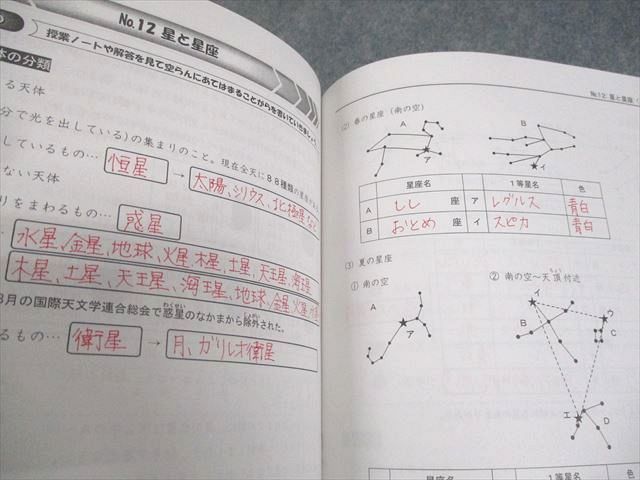 No.12 星と星座
授業ノートや解答を見て空らんにあてはまることがらを書いていきましょう
体の分類
る天体
分で光を出している)の集まりのこと。現在全天に88種類の
しているもの… 恒星 → 太陽、シリウス、北極星など
ない天体
りをまわるもの… 惑星
水星、金星、地球、火星、木星、土星、天王星、海王星
木星、土星、天王星、海王星、地球、金星、火星
8月の国際天文学連合総会で惑星のなかまから除外された。
わくせい
じょがい
るもの… 衛星 → 月、ガリレオ衛星
No.12:星と星座
(2) 春の星座（南の空）
A
ア
B
イ
星座名 1等星名 色
A しし 座 ア レグルス 青白
B おとめ 座 イ スピカ 青白
(3) 夏の星座
① 南の空
② 南の空～天頂付近
ちょう
A
ア
イ
B
ウ
C
エ
D
星座名 1等星名 色